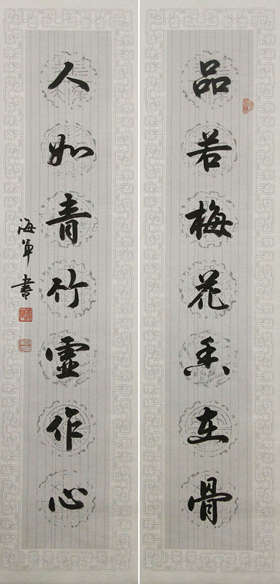 品若梅花香在骨
人如青竹虚作心
海军書